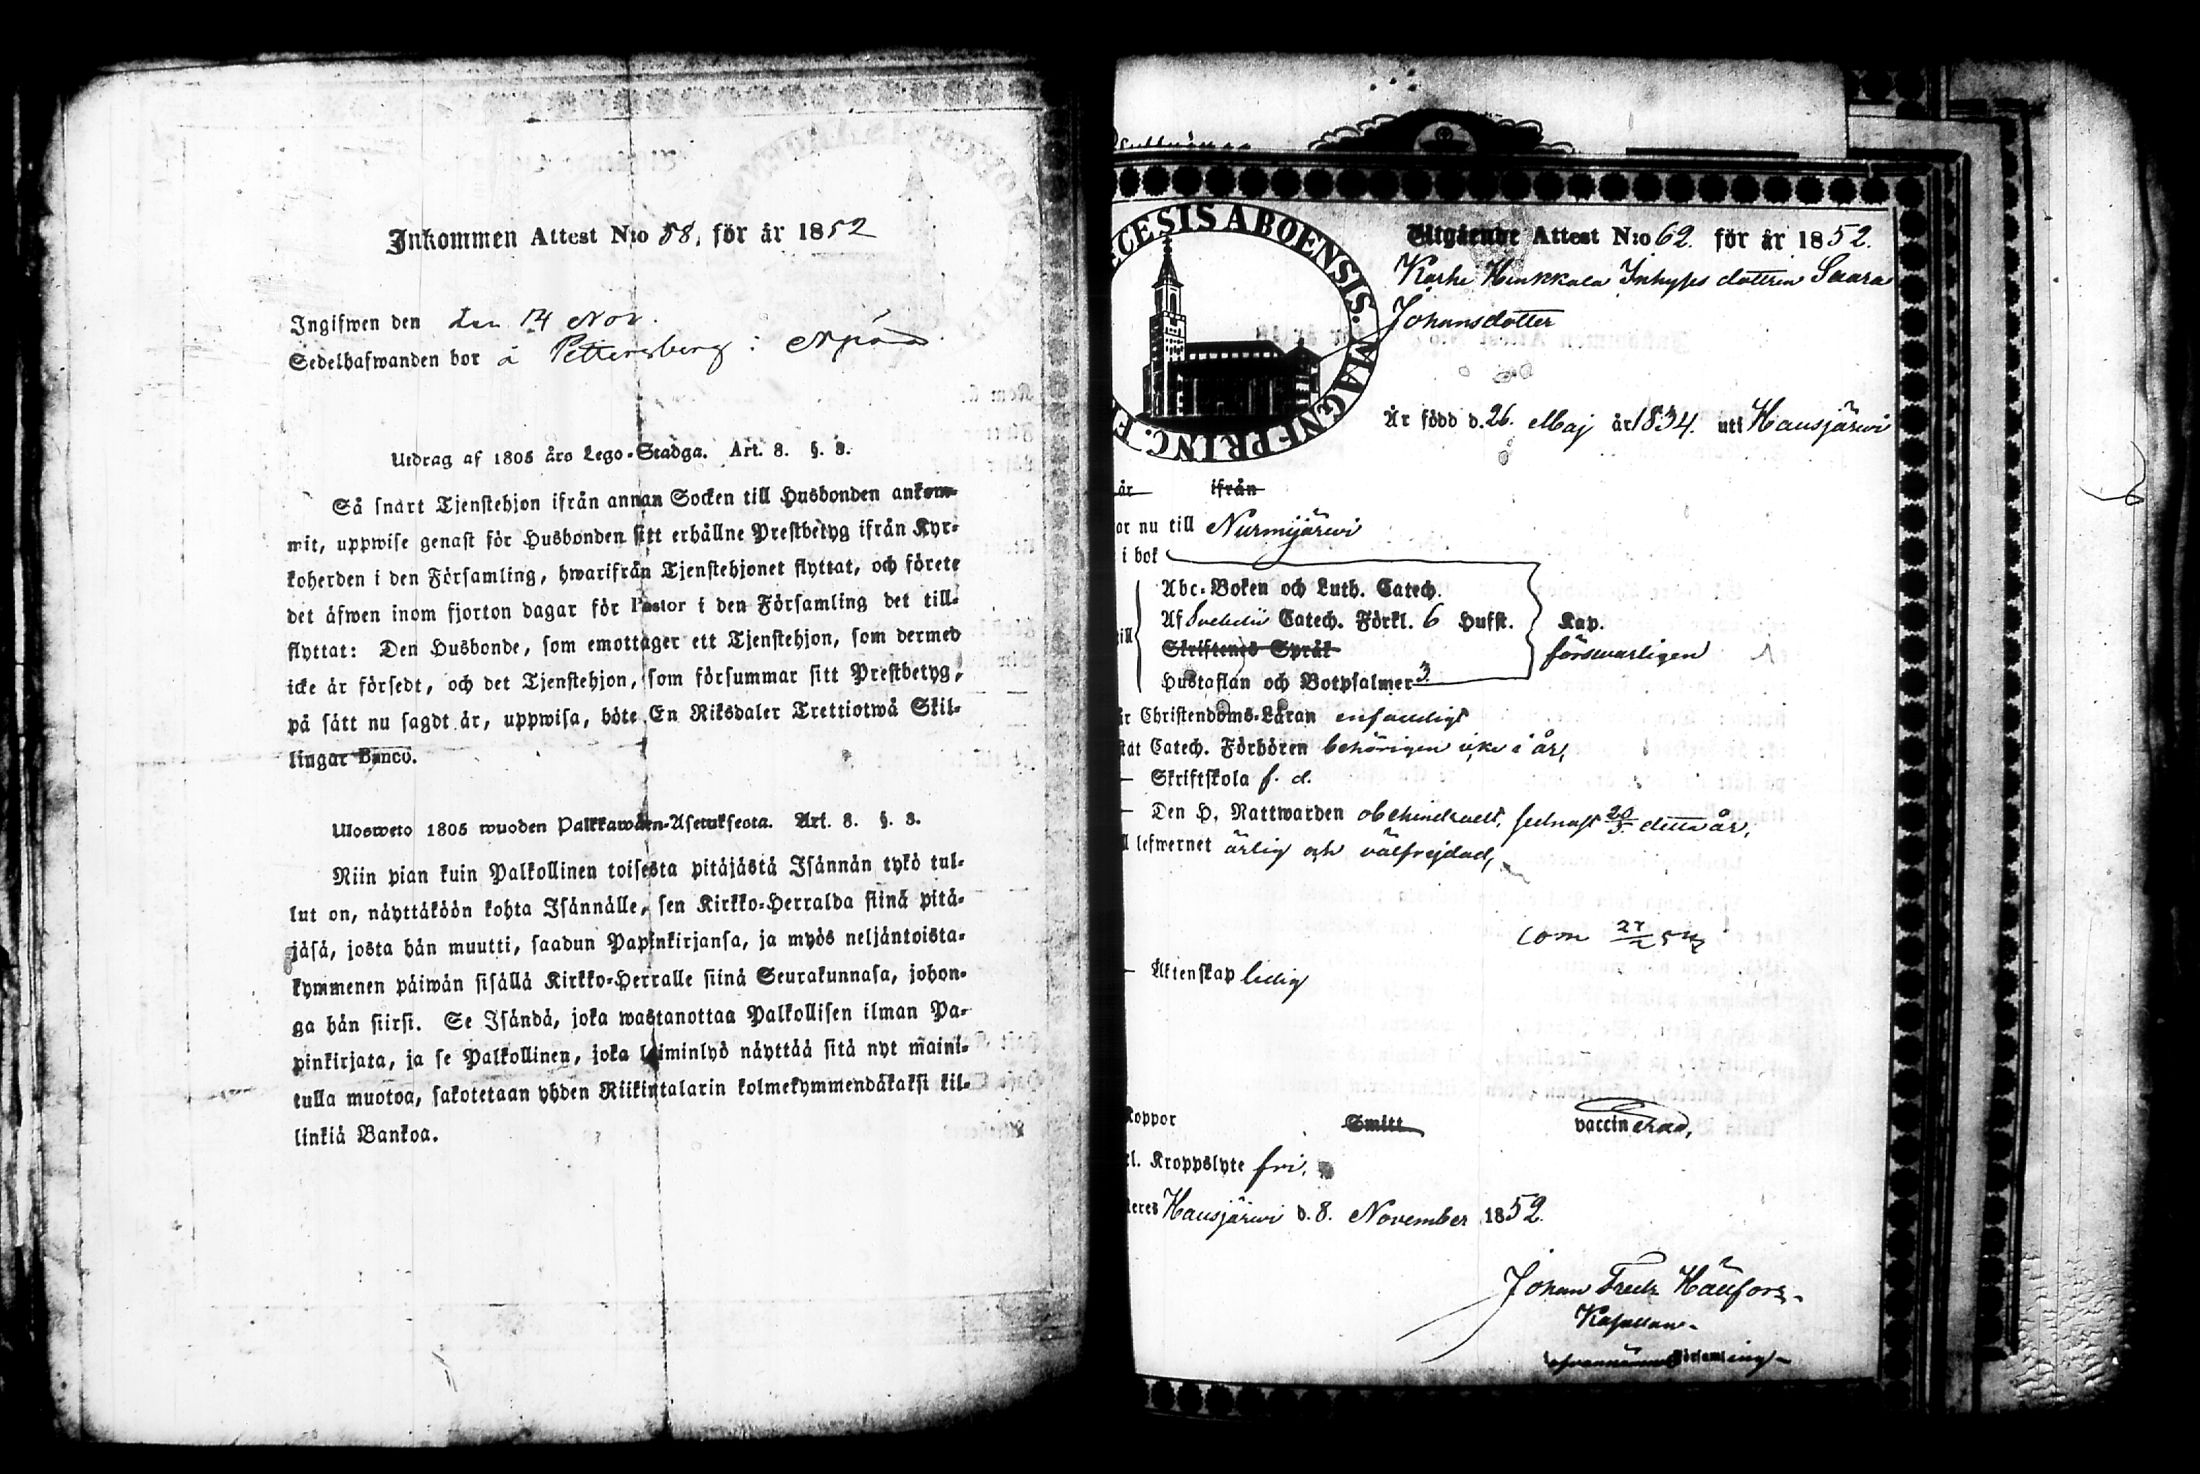 Inkommen Attest N:o 58, för år 1852
Ingifwen den den 14 Nov.
Sedelhafwanden bor å Pettersberg i
Utdrag af 1805 års Lego-Stadga. Art. 8. §. 8.
Så snart Tjenstehjon ifrån annan Socken till Husbonden ankom-
mit, uppwise genast för Husbonden sitt erhållne Prestbetyg ifrån Kyr-
koherden i den Församling, hwarifrån Tjenstehjonet flyttat, och förete
det äfwen inom fjorton dagar för Pastor i den Församling det till-
flyttat: Den Husbonde, som emottager ett Tjenstehjon, som dermed
icke är försedt, och det Tjenstehjon, som försummar sitt Prestbetyg,
på sätt nu sagdt är, uppwisa, böte En Riksdaler Trettiotwå Skil-
lingar Banco.
Ulosweto 1805 wuoden Palkkawäen-Asetuksesta. Art. 8. §. 8.
Niin pian kuin Palkollinen toisesta pitäjästä Isännän tykö tul-
lut on, näyttäköön kohta Isännälle, sen Kirkko-Herralda siinä pitä-
jäsä, josta hän muutti, saadun Papinkirjansa, ja myös neljäntoista-
kymmenen päiwän sisällä Kirkko-Herralle siinä Seurakunnasa, johon-
ga hän siirsi. Se Isändä, joka wastanottaa Palkollisen ilman Pa-
pinkirjata, ja se Palkollinen, joka laiminlyö näyttää sitä nyt maini-
tulla muotoa, sakotetaan yhden Riikintalarin kolmekymmendäkaksi kil-
linkiä Bankoa.
CESIS ABOENSIS. MAGNI PRINC. F
Utgående Attest N:o 62. för år 1852.
Karhi Henkkala Inhyses dottren Saara
Johansdotter
Är född d. 26. Maj år 1834. uti Hausjärwi
är ifrån
or nu till Nurmijärwi
i bok
Abc-Boken och Luth. Catech.
Af Svebelii Catech. Förkl. 6 Hufst. Kap.
till
Skriftenes Språk försvarligen
Hustaflan och Botpsalmer 3
är Christendoms-Läran enfaldigt
stat Catech. Förhören behörigen icke i år,
Skriftskola f. d.
Den H. Nattwarden obehindradt, sednast 20/5 detta år,
l lefwernet ärlig och välfrejdad,
com
Äktenskap ledig
Koppor Smitt vaccinerad,
cl. Kroppslyte fri,
eres Hausjärwi d. 8. November 1852.
Johan Fredr
Kapellan
Församling